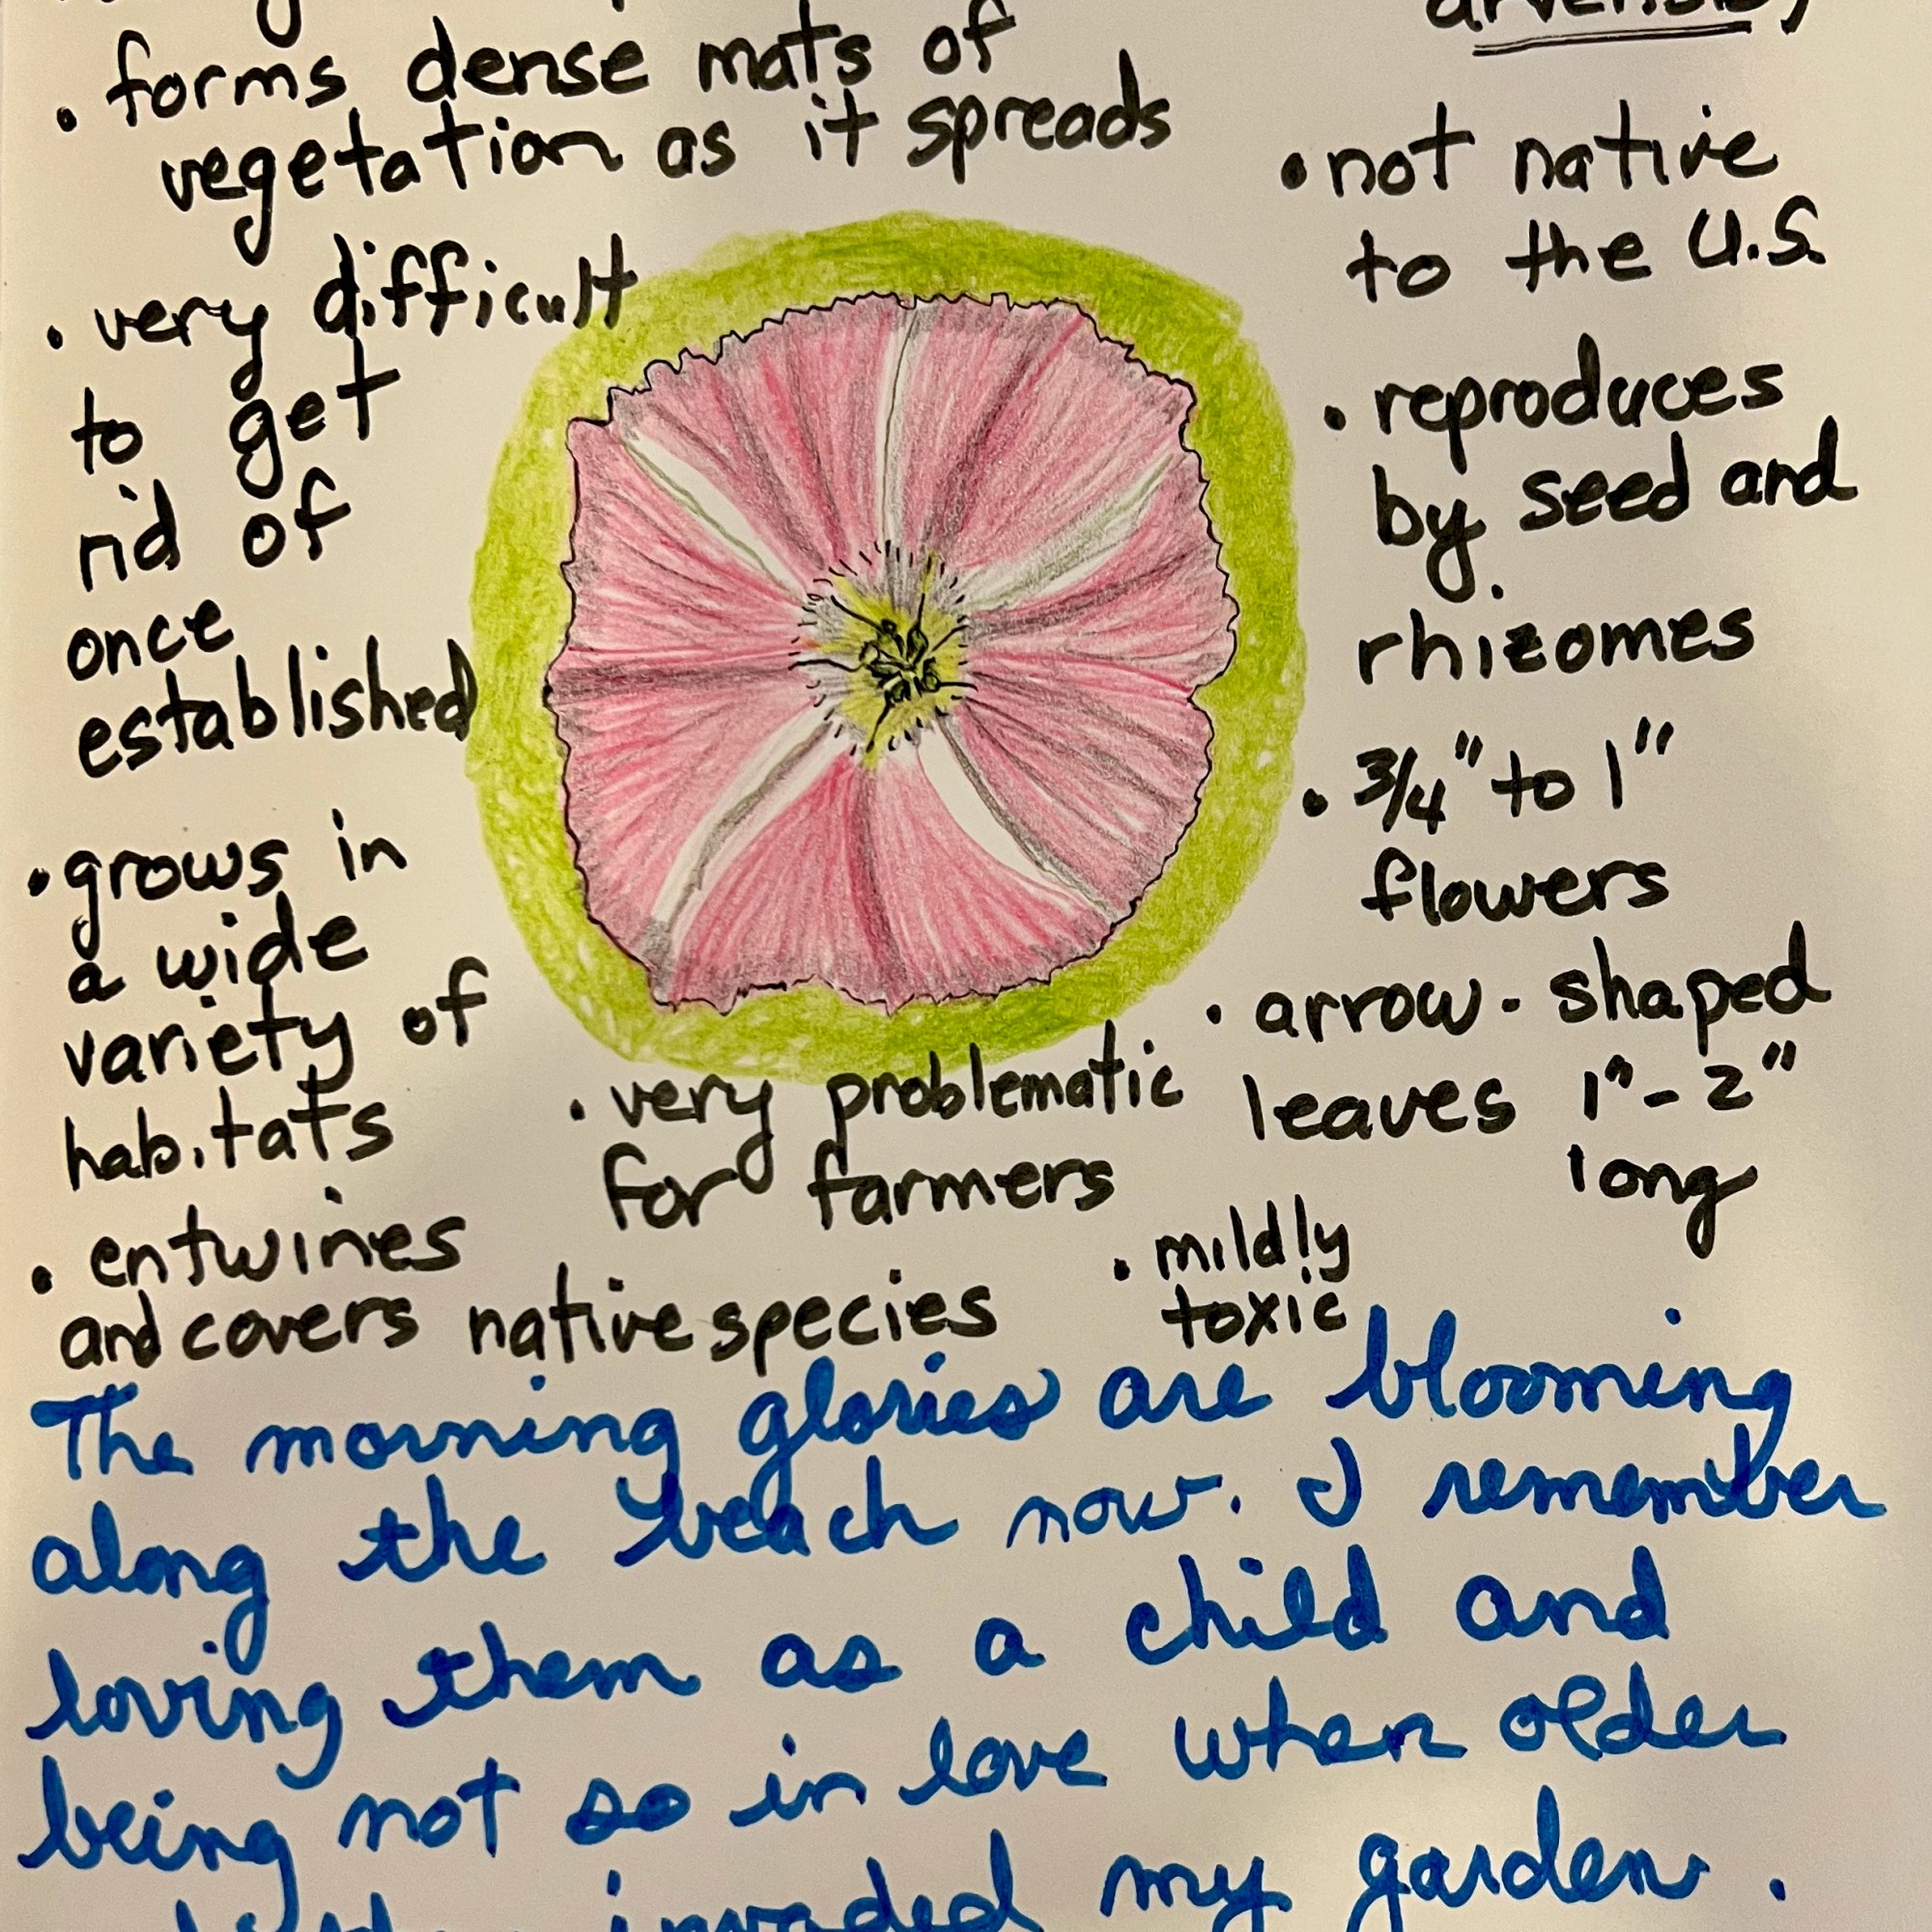 arvensis)
• forms dense mats of
vegetation as it spreads
• very difficult
to get
rid of
once
established
• grows in
a wide
variety of
habitats
• entwines
and covers native species
• very problematic
for farmers
• not native
to the U.S.
• reproduces
by seed and
rhizomes
• 3/4" to 1"
flowers
• arrow-shaped
leaves 1"-2"
long
• mildly
toxic
The morning glories are blooming
along the beach now. I remember
loving them as a child and
being not so in love when older
invaded my garden.